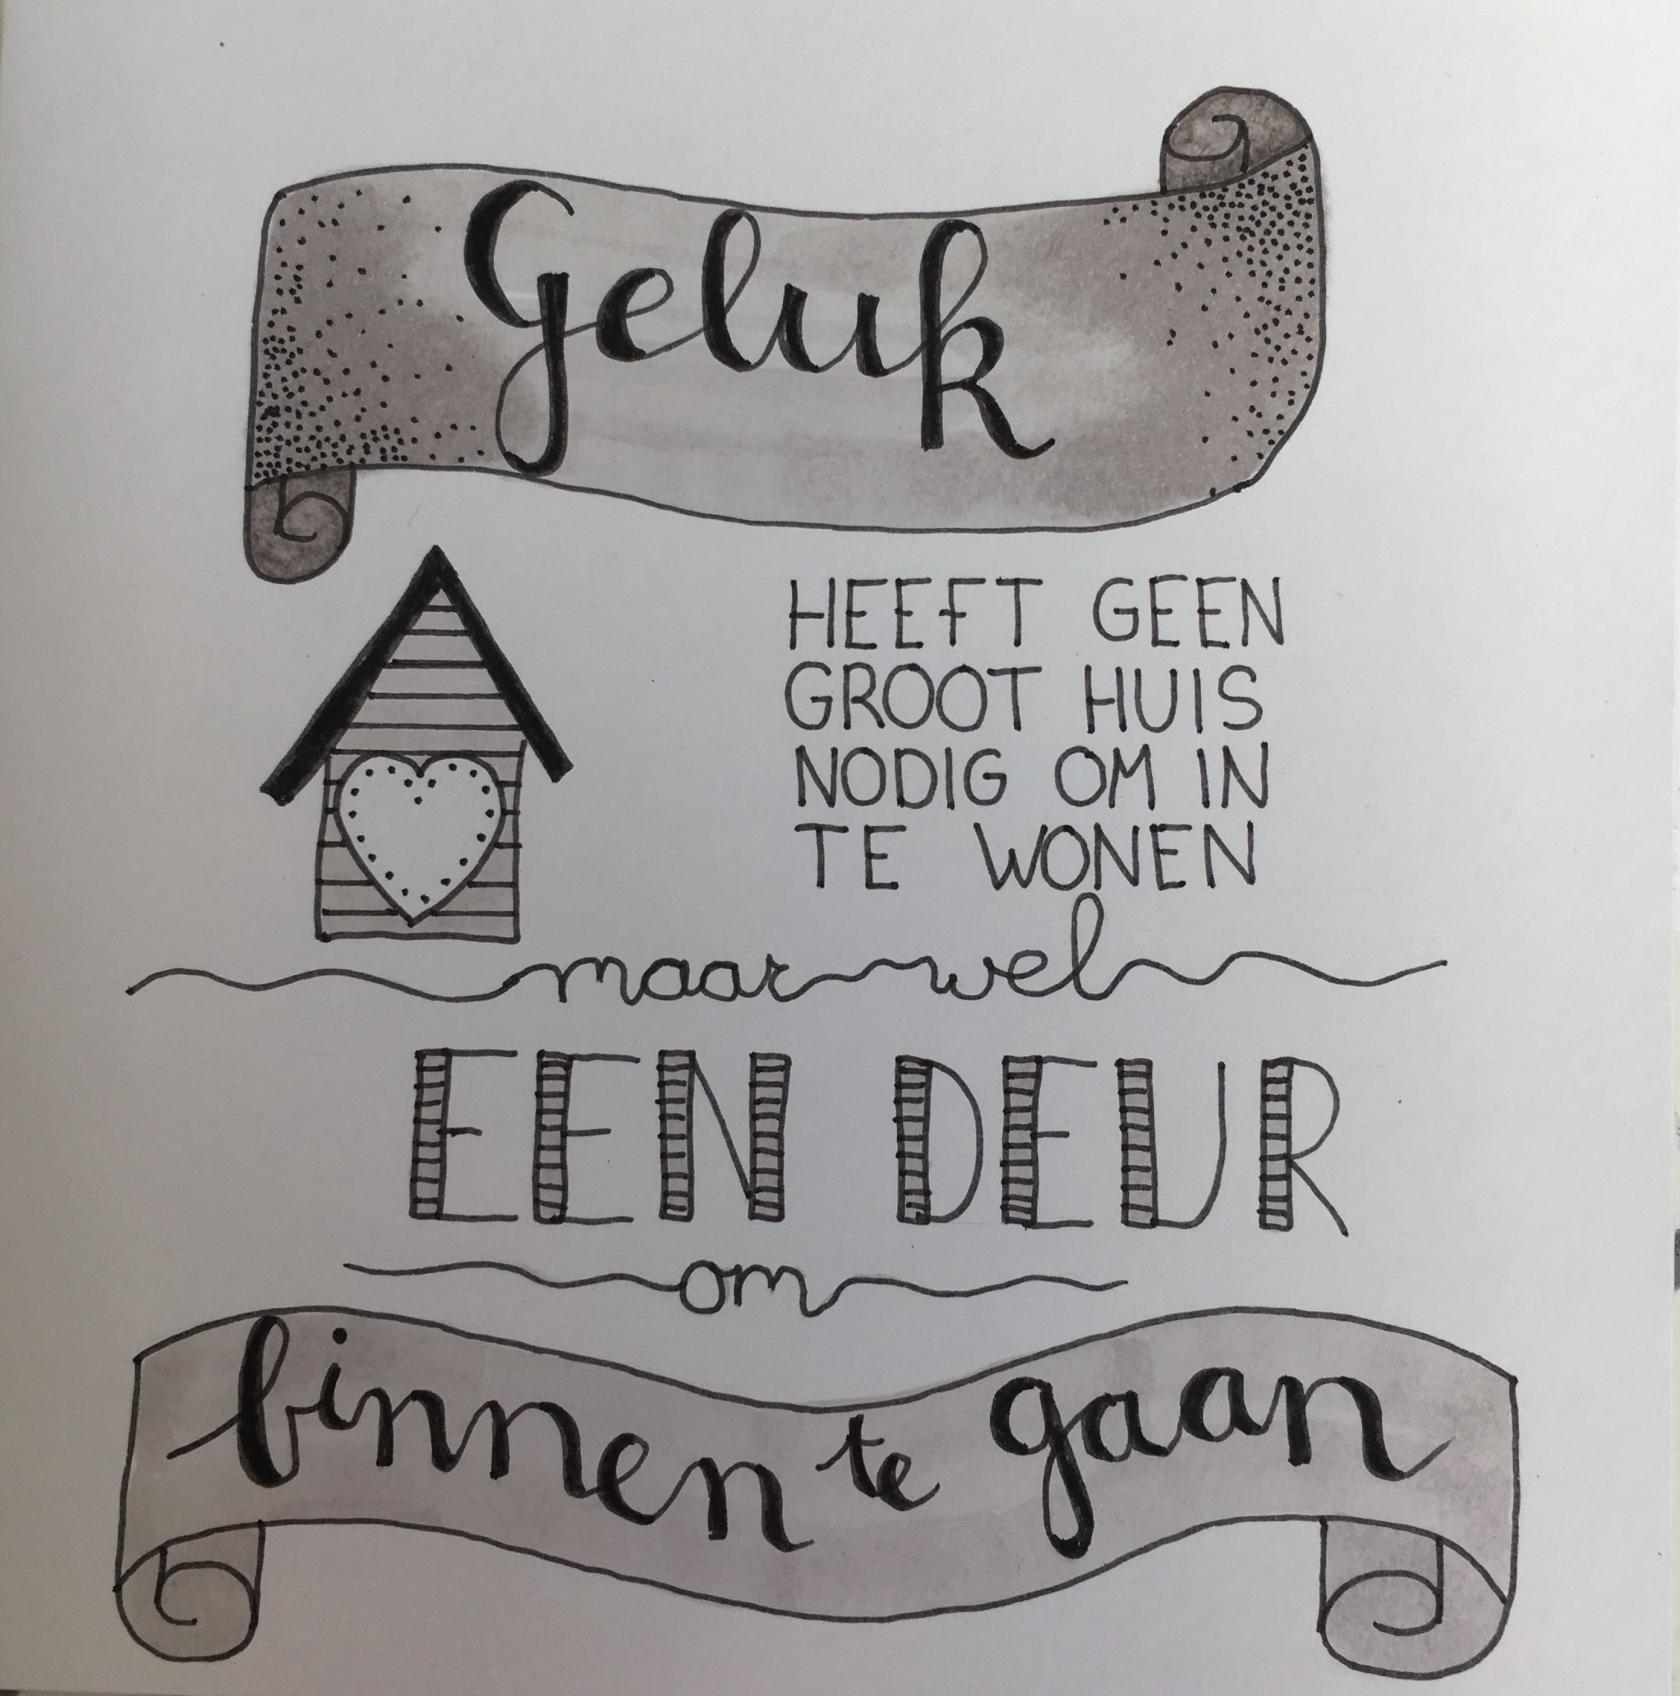 Geluk
HEEFT GEEN
GROOT HUIS
NODIG OM IN
TE WONEN
maar wel
EEN DEUR
om
binnen te gaan